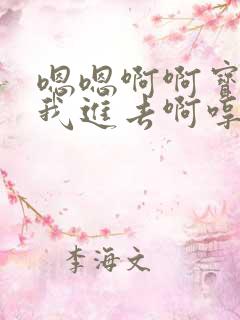 嗯嗯啊啊寶
我進去啊啍
李海文